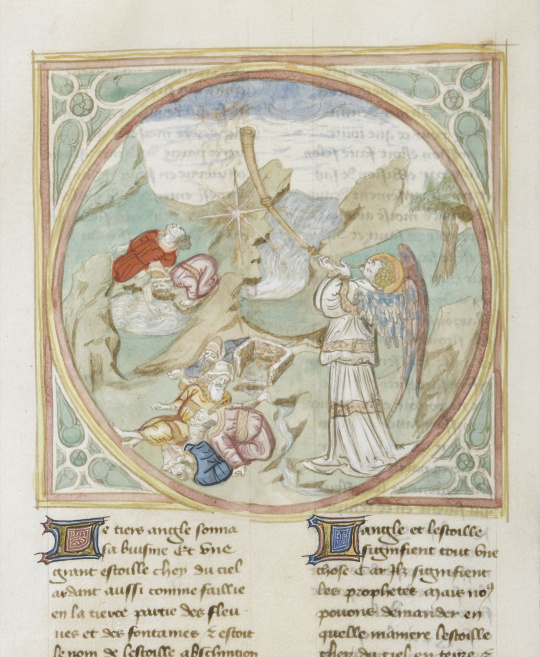 Le tiers angle sonna
sa buisine Et vne
grant estoille chey du ciel
ardant aussi comme faillie
en la tierce partie des fleu
ues et des fontaines & estoit
le nom de lestoille absinction
Langle et lestoille
signifient tout vne
chose Car ilz signifient
les prophetes mais noꝰ
pouons demander en
quelle maniere lestoille
chey du ciel en terre &